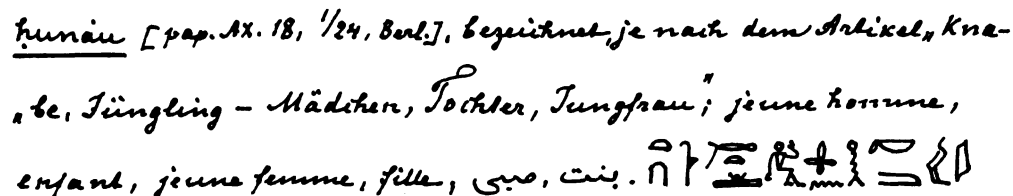 ḥunȧu [pap. AX. 18, 1/24, Berl.], bezeichnet, je nach dem Artikel „Kna-
„be, Jüngling – Mädchen, Tochter, Jungfrau"; jeune homme,
enfant, jeune femme, fille, صبى, بنت.